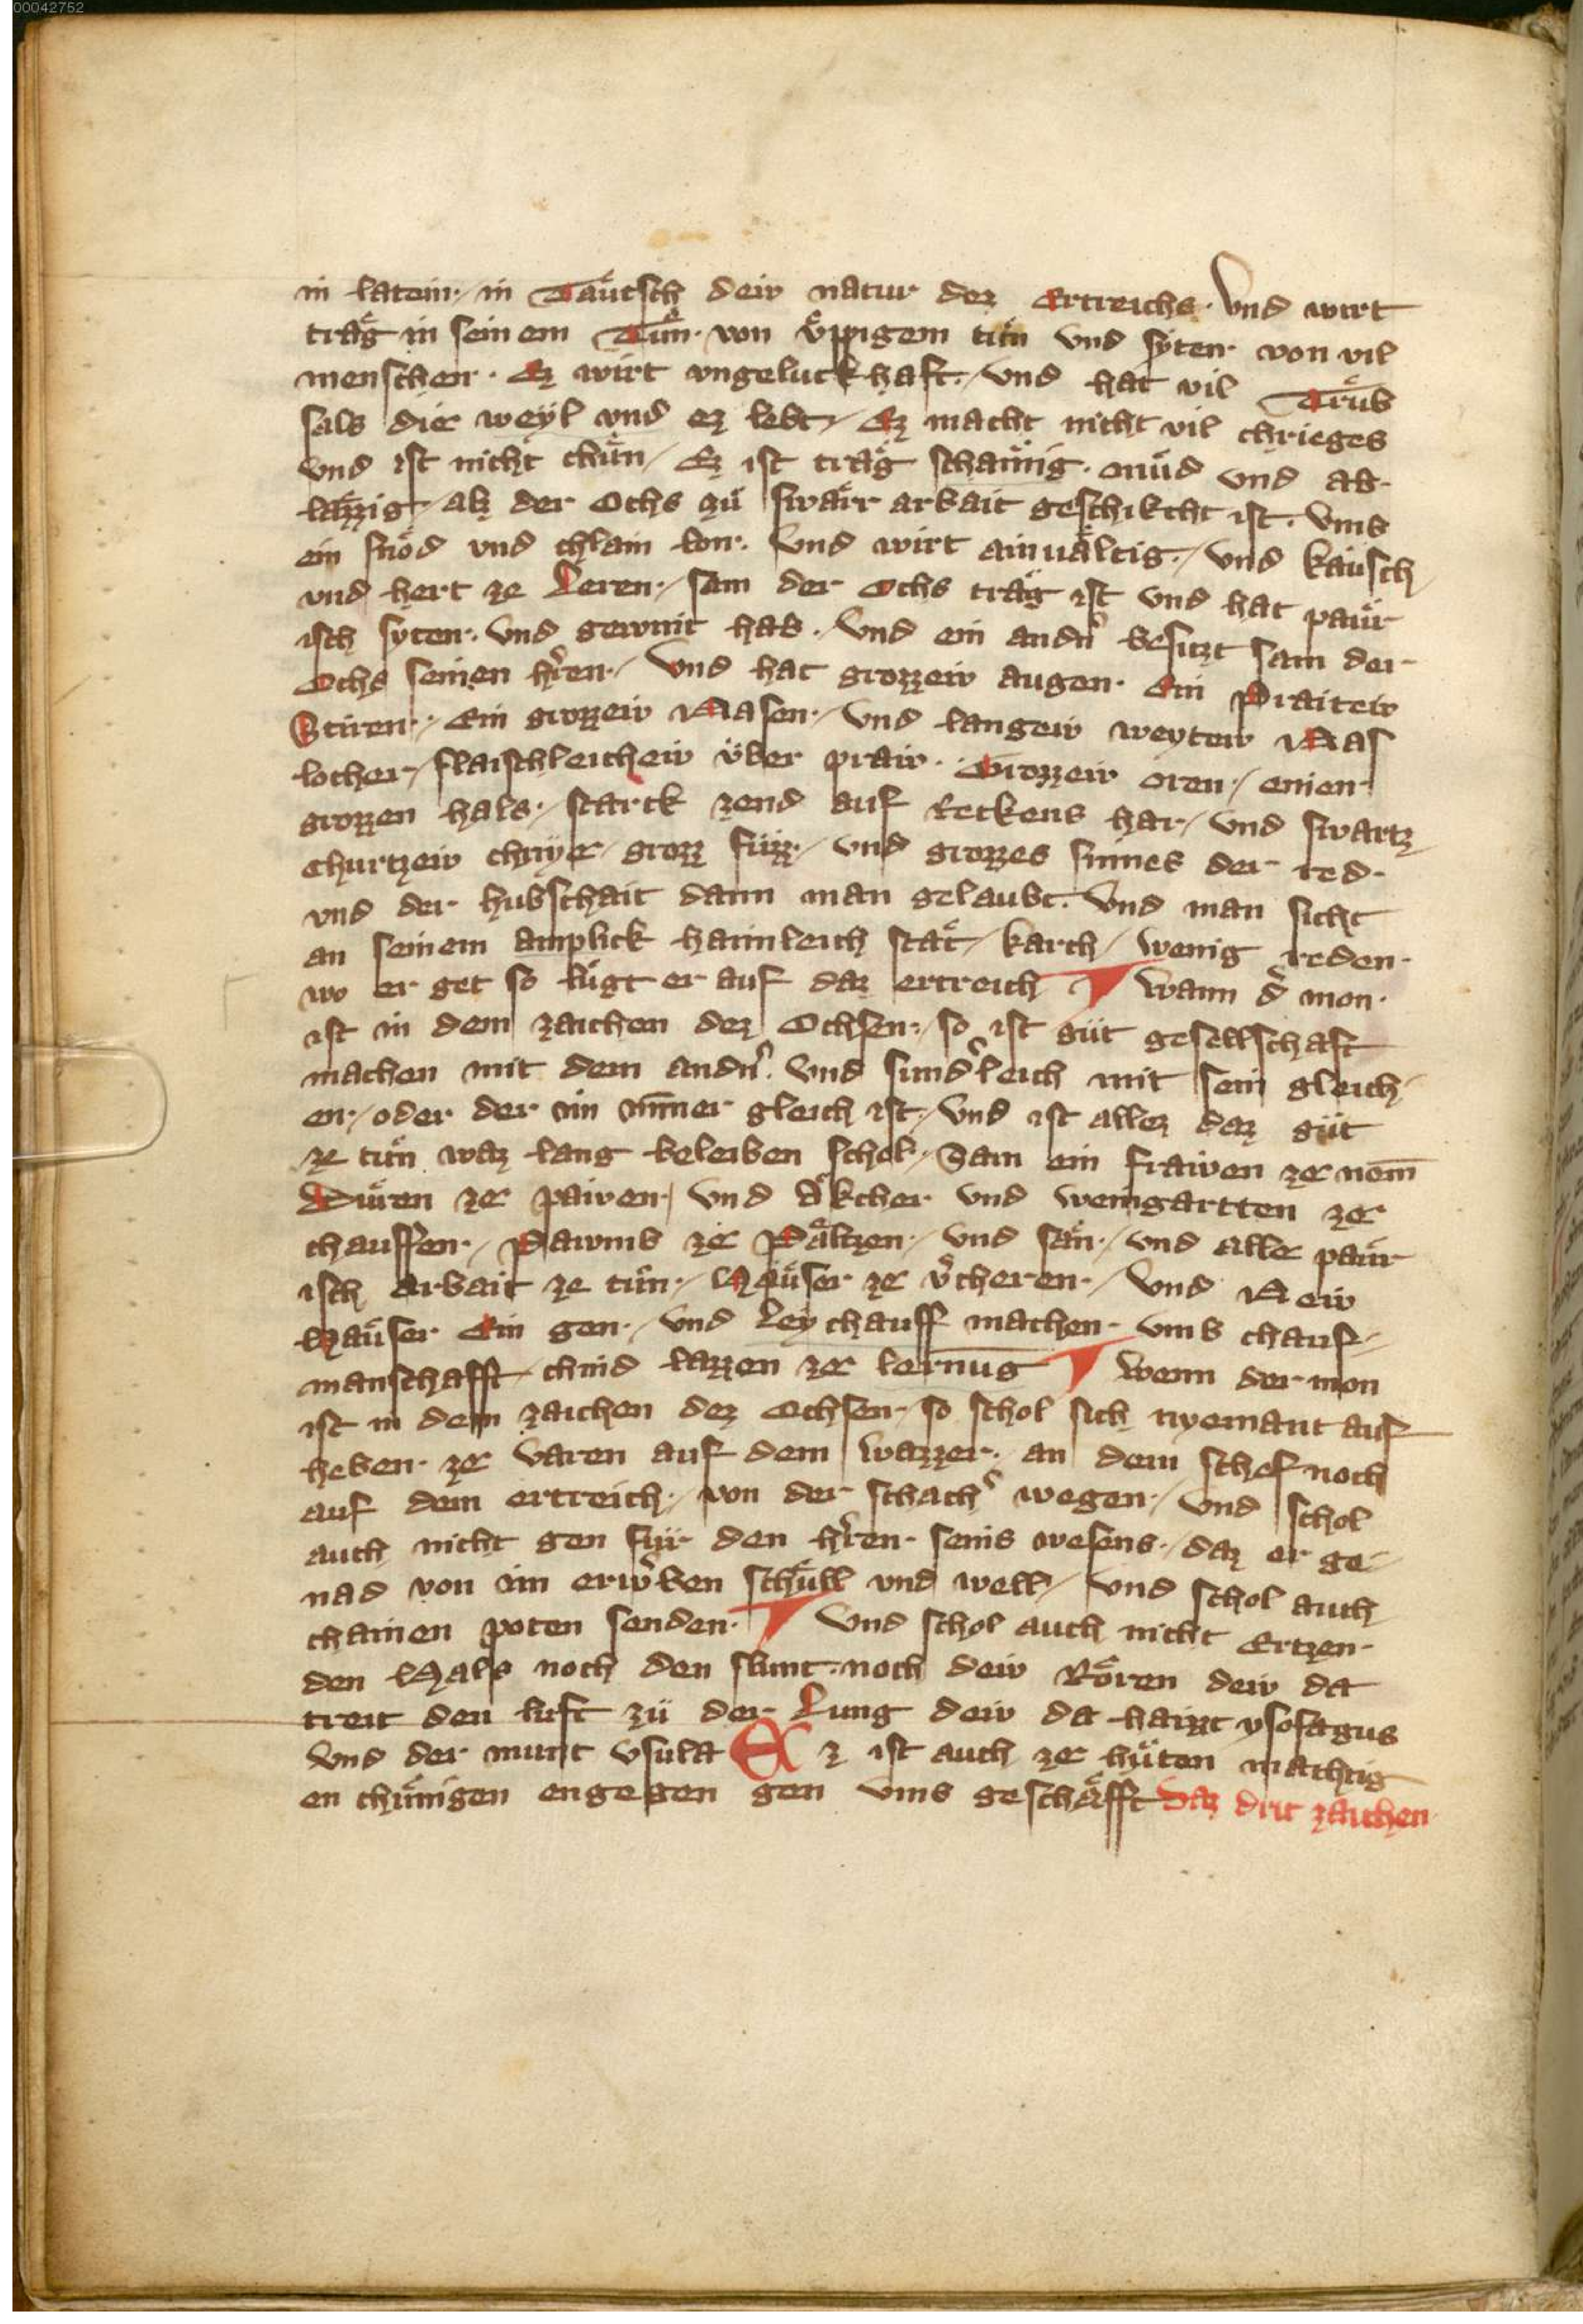 00042752
in latein / in Taͤutsch deiv natur dez Ertreichs · Vnd wirt
traͤg in seinem Tuͤn · von vͤppigem tuͤn vnd syten · von vil
menschen · Ez wirt vngeluckhaft · / vnd hat vil Truͤb
sals die weyl vnd ez lebt / Ez macht nicht vil chrieges
vnd ist nicht chuͤn / Ez ist traͤg schaͤmig · muͤd vnd ab-
laͤzzig / alz der Ochs zuͤ swaͤrr arbait geschikcht ist · vmb
ein snoͤd vnd chlain lon · Vnd wirt ainualtig · / vnd kaͤusch
vnd hert ze Leren · / sam der Ochs traͤg ist vnd hat paͤur
isch syten · vnd gewint hab · vnd ein andn͛ besitzt sam der
Ochs seinen hr͛en · / Vnd hat grozzeiv augen · Ein Praiteiv
Stiren · Ein grozzeiv Nasen · / Vnd langeiv weyteiv Nas
locher / flaischleicheiv vͤber praiv · Grozzeiv oren · / einen
grozzen hals · / starck zend auf Reckens har / vnd swartz
churtzeiv chnye / grozz fuͤzz · / vnd grozzes sinnes der red ·
vnd der hubschait dann man gelaubt · Vnd man sicht
an seinem amplick haimleich staͤt / karch / wenig reden ·
wo er get so luͤgt er auf daz ertreich ¶ Wann d͛ mon ·
ist in dem zaichen dez Ochsen · / so ist guͤt gesellschaft
machen mit dem andn͛ · Vnd sund͛leich mit sein gleich
en · / oder der im ym̄er gleich ist · / Vnd ist allez daz guͤt
ze tuͤn waz lang beleiben schol · / Sam ein frawen ze nem̄
Muͤren ze pawen / vnd aͤkcher vnd weingartten ze
chauffen · / Pawmb ze Paͤltzen · / vnd saͤn · / vnd alle paͤur
isch arbait ze tuͤn · / Haͤuser ze v͛cheren · / Vnd Neiv
Haͤuser Ein gen · / vnd Leychauff machen · vmb chauf-
manschafft / chind lazzen ze lernu̅g ¶ Wenn der mon
ist in dem zaichen dez Ochsen · so schol sich nyemant auf
heben · ze varen auf dem wazzer · an dem schef noch
auf dem ertreich · / von der schach͛ wegen · / Vnd schol
auch nicht gen fuͤr den hr͛en · seins wesens · / daz er ge-
nad von im erw͛ben schuͤll vnd well / Vnd schol auch
chainen poten senden · ¶ Vnd schol auch nicht Ertzen ·
den Hals noch den slunt · noch deiv Roͤren deiv da
treit den luft zuͤ der Lung deiv da haizzt ysofagus
Vnd der munt vsula Ez ist auch ze huͤten maͤchtig
en chuͤnigen engegen gen vmb geschaͤfft Daz drit zaichen